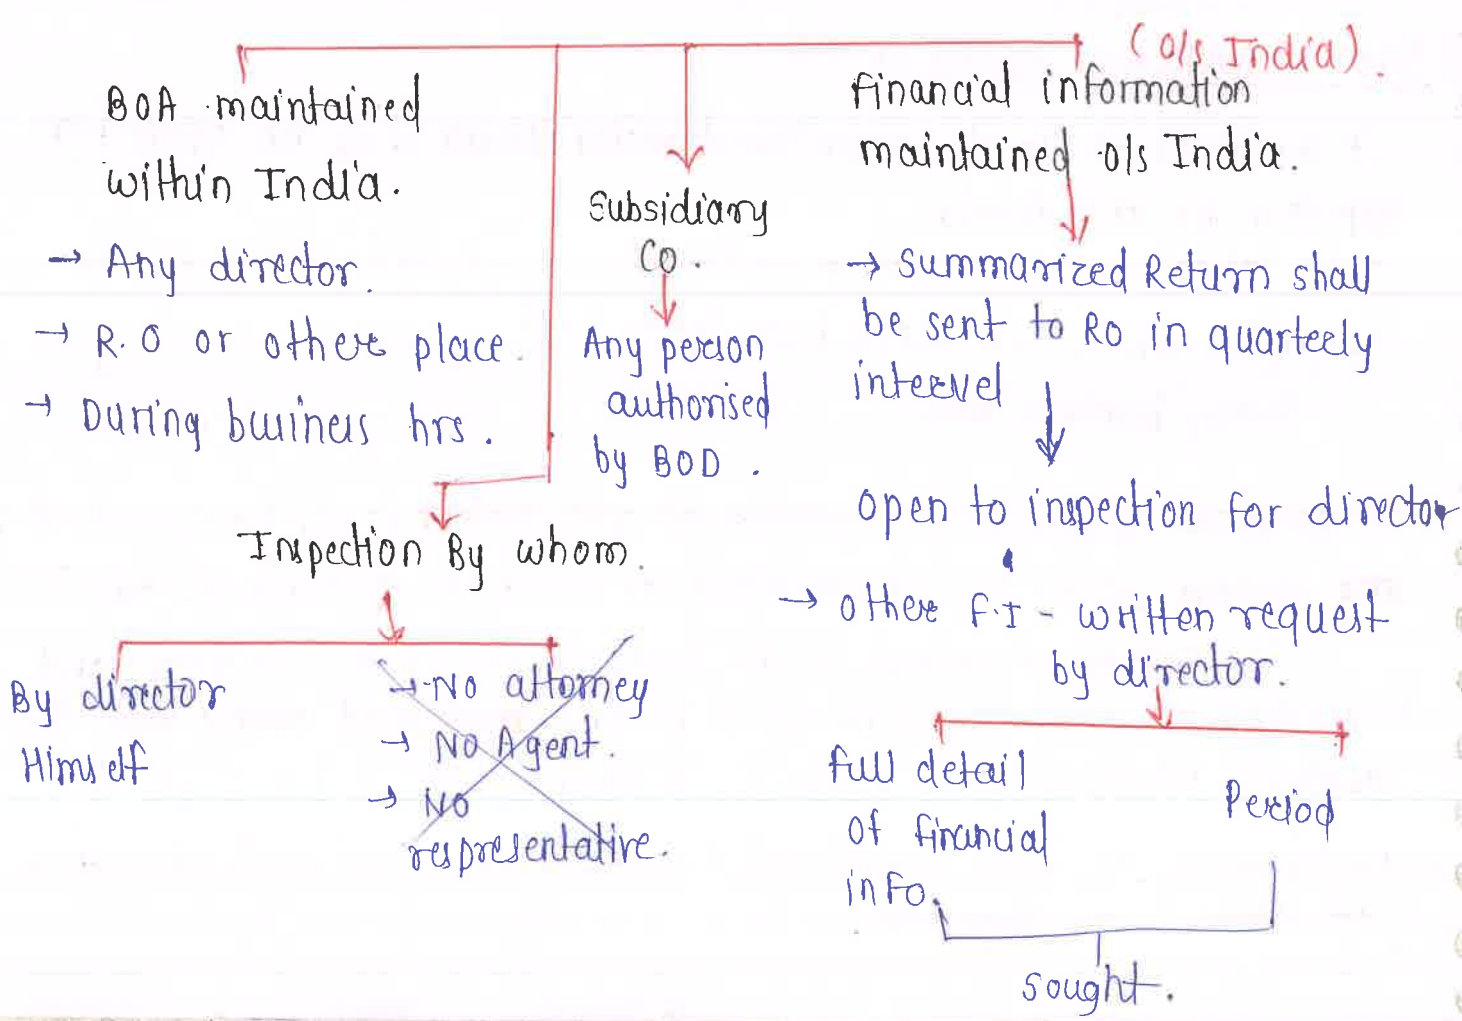 (O/s India).
BOA maintained
within India.
→ Any director.
→ R.O or other place.
→ During business hrs.
Subsidiary
Co.
Any person
authorised
by BOD.
Financial information
maintained o/s India.
→ Summarized Return shall
be sent to RO in quarteely
intervel
open to inspection for director
→ other F.I - written request
by director.
Full detail
of financial
info.
Period
Sought.
Inspection By whom.
By director
Himself
→ No attorney
→ No Agent.
→ No
respresentative.